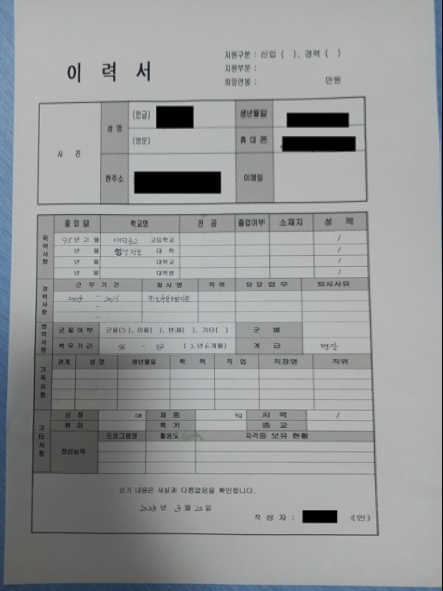 이 력 서
지원구분 : 신입 ( ), 경력 ( )
지원부분 :
희망연봉 : 만원
사 진
성 명
(한글)
(영문)
생년월일
휴 대 폰
현주소
이메일
학력사항
졸 업 일 학교명 전 공 졸업여부 소재지 성 적
95년 2월 고등학교 /
년 월 대 학 /
년 월 대학교 /
년 월 대학원 /
경력사항
근 무 기 간 회 사 명 직위 담 당 업 무 퇴사사유
2008 - 2015
병역사항
군필여부 군필( ), 미필( ), 면제( ), 기타( ) 군 별
복무기간 96 - ( 2년6개월) 계 급 병장
가족사항
관계 성 명 생년월일 학 력 직 업 직장명 직위
기타사항
신 장 cm 체 중 kg 시 력 /
취 미 특 기 종 교
전산능력
프로그램명 활용도 자격증 보유 현황
상기 내용은 사실과 다름없음을 확인합니다.
2023 년 3 월 20일
작 성 자 : (인)